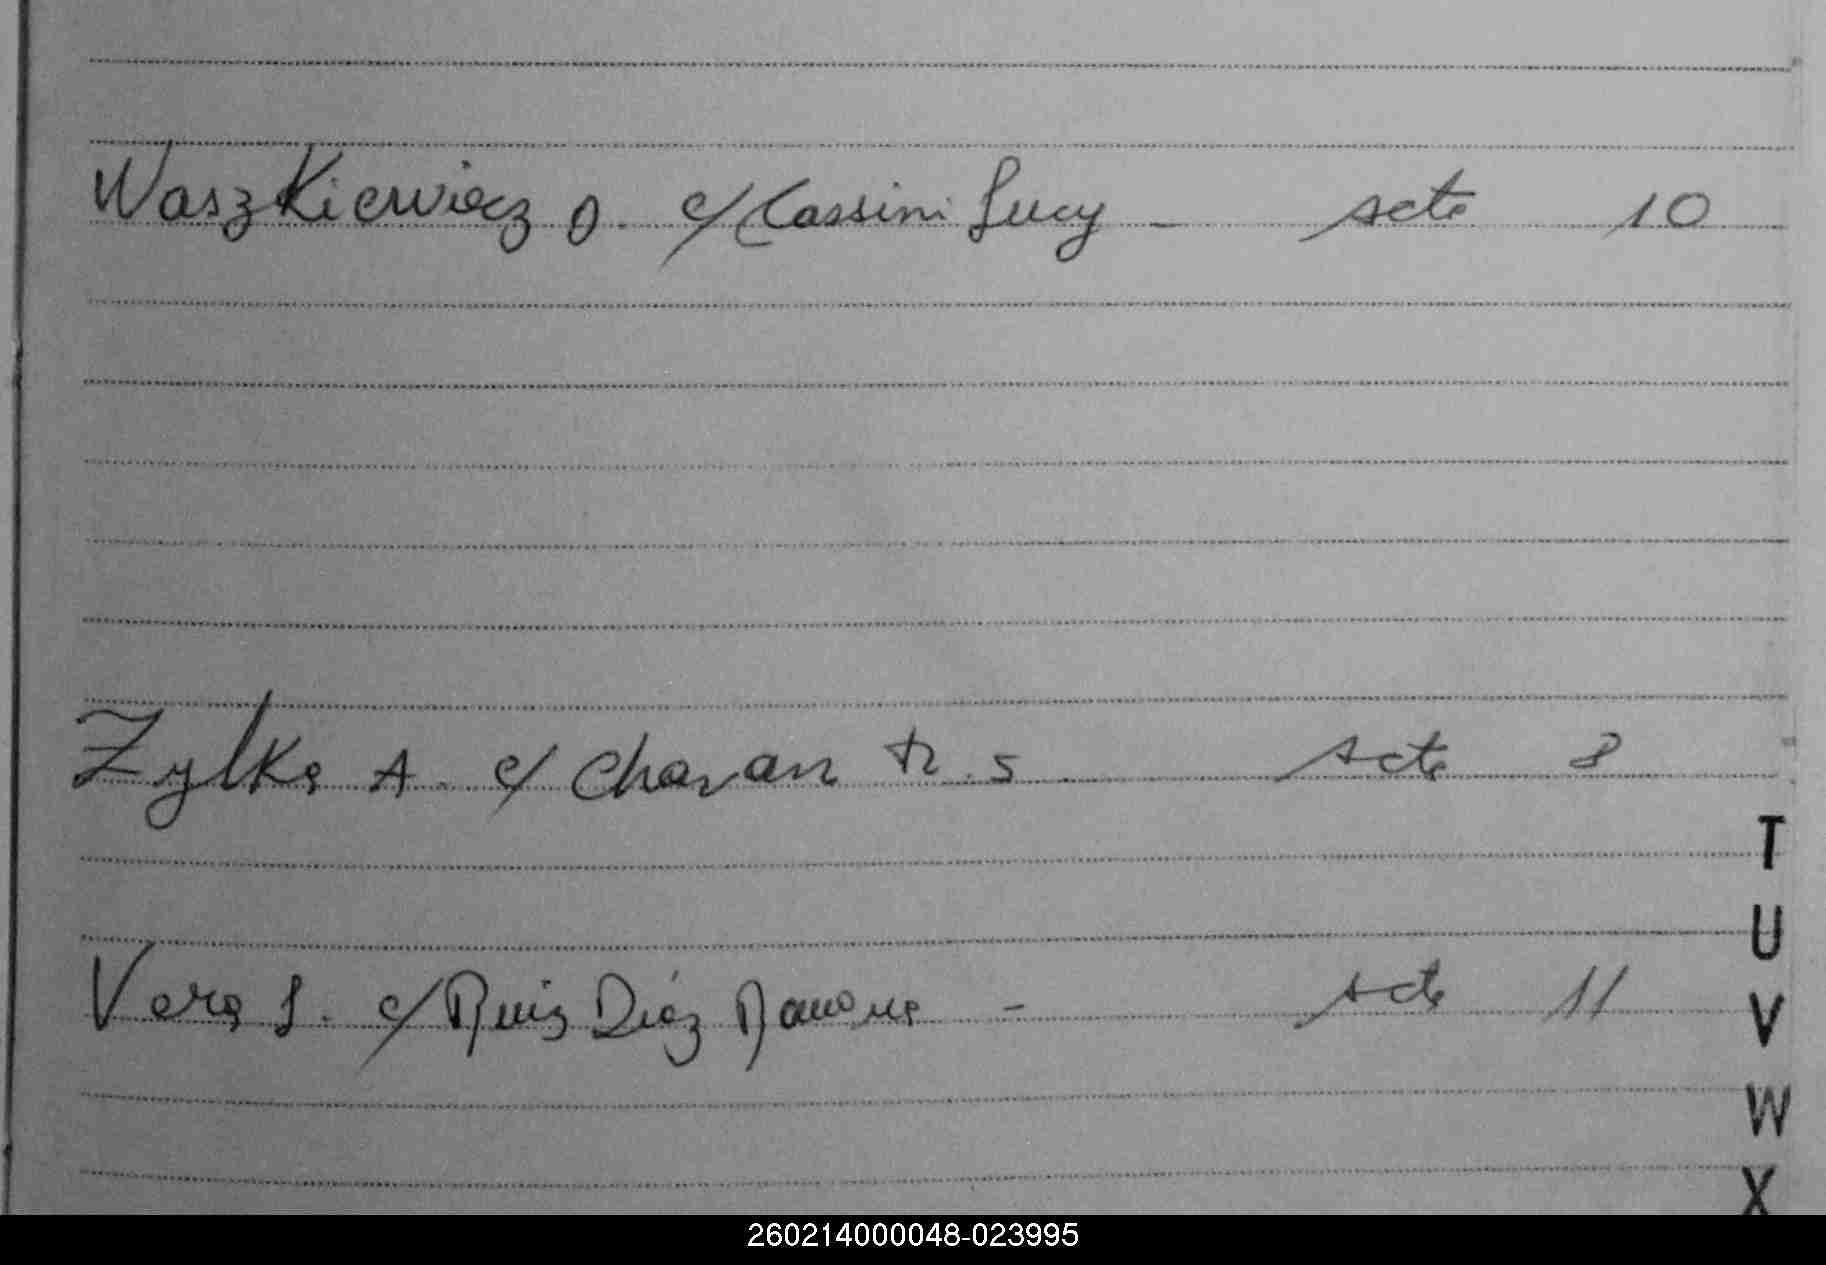 Waszkiewicz O. c/ Cassini Lucy - acta 10
Zylka A. c/ Chavan R. S acta 8
T
U
Vera S. c/ Ruiz Díaz Ramona - acta 11
V
W
X
260214000048-023995